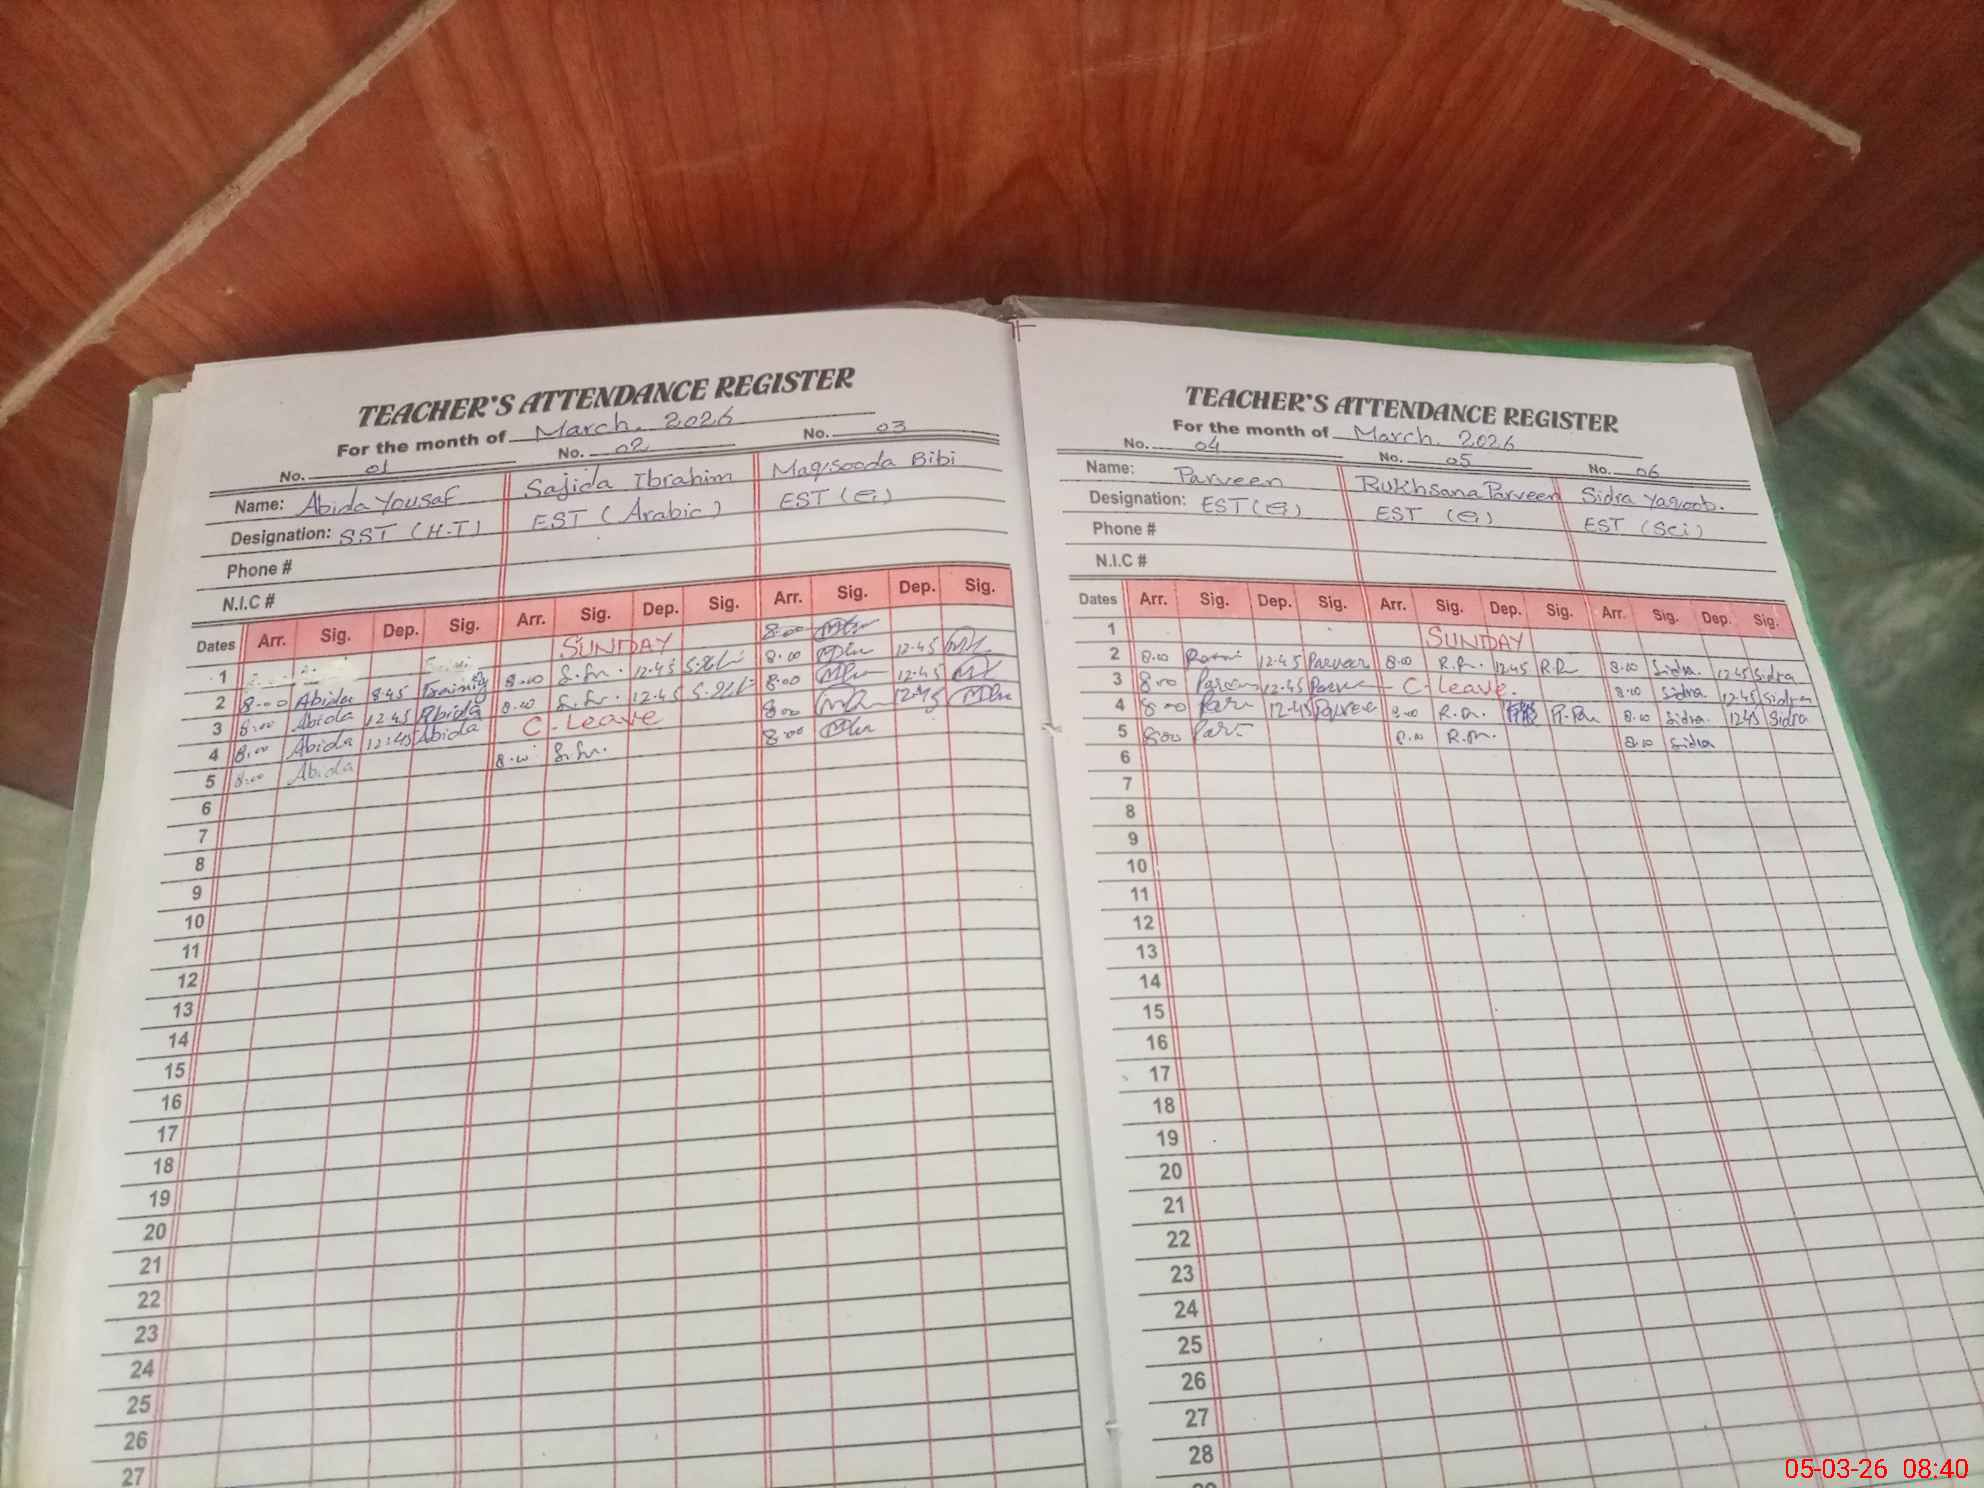 TEACHER'S ATTENDANCE REGISTER
For the month of March. 2026
No. 01 No. 02 No. 03
Name: Abida Yousaf Sajida Ibrahim Maqsooda Bibi
Designation: SST (H.T) EST (Arabic) EST (G)
Phone #
N.I.C #
Dates Arr. Sig. Dep. Sig. Arr. Sig. Dep. Sig. Arr. Sig. Dep. Sig.
1 SUNDAY 8.00
2 8.00 Abida 8.45 Training 8.00 12.45 8.00 12.45
3 8.00 Abida 12.45 Abida 8.00 12.45 8.00 12.45
4 8.00 Abida 12:45 Abida C-Leave 8.00 12.45
5 8.00 Abida 8.00 8.00
6
7
8
9
10
11
12
13
14
15
16
17
18
19
20
21
22
23
24
25
26
27
TEACHER'S ATTENDANCE REGISTER
For the month of March. 2026
No. 04 No. 05 No. 06
Name: Parveen Rukhsana Parveen Sidra Yaqoob.
Designation: EST (G) EST (G) EST (Sci)
Phone #
N.I.C #
Dates Arr. Sig. Dep. Sig. Arr. Sig. Dep. Sig. Arr. Sig. Dep. Sig.
1 SUNDAY
2 8.00 12.45 Parveen 8.00 12.45 8.00 Sidra. 12.45 Sidra
3 8.00 12.45 C-Leave. 8.00 Sidra 12.45 Sidra
4 8.00 12.45 Parveen 8.00 8.00 Sidra. 12.45 Sidra
5 8.00 8.00 8.00 Sidra
6
7
8
9
10
11
12
13
14
15
16
17
18
19
20
21
22
23
24
25
26
27
28
05-03-26 08:40